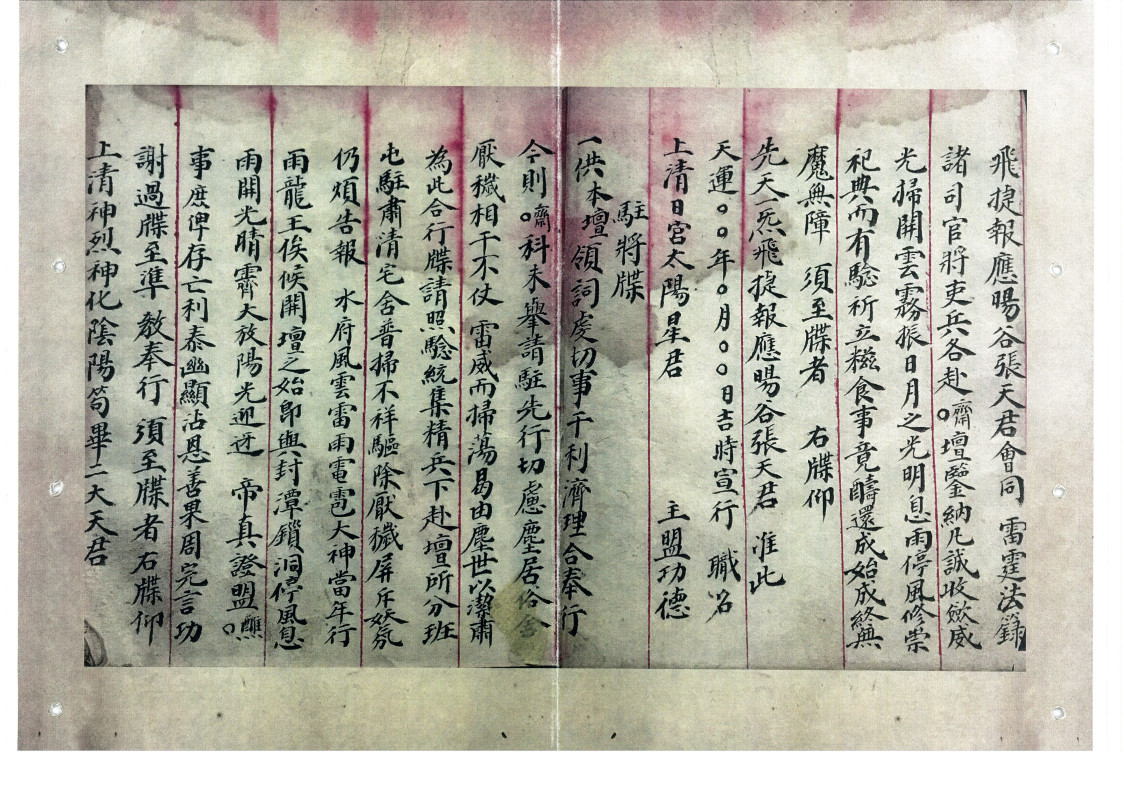 飛捷報應暘谷張天君會同 雷霆法籙
諸司官將吏兵各赴〇齋壇鑒納凡誠收斂威
光掃開雲霧振日月之光明息雨停風修崇
祀典而有驗祈立糍食事竟醻還成始成終無
魔無障 須至牒者 右牒仰
先天一炁飛捷報應暘谷張天君 准此
天運〇〇年〇月〇〇日吉時宣行 職名
上清日宮太陽星君 主盟功德
駐將牒
一供本壇領詞處切事干利濟理合奉行
今則〇齋科未舉請駐先行切慮塵居俗舍
厭穢相干不仗 雷威而掃蕩曷由塵世以潔肅
為此合行牒請照驗統集精兵下赴壇所分班
屯駐肅清宅舍普掃不祥驅除厭穢屏斥妖氛
仍煩告報 水府風雲雷雨電雹大神當年行
雨龍王俟候開壇之始即與封潭鎖洞停風息
雨開光晴霽大放陽光迎迓 帝真證盟〇醮
事度俾存亡利泰幽顯沾恩善果周完言功
謝過牒至準教奉行 須至牒者 右牒仰
上清神烈神化陰陽苟畢二大天君